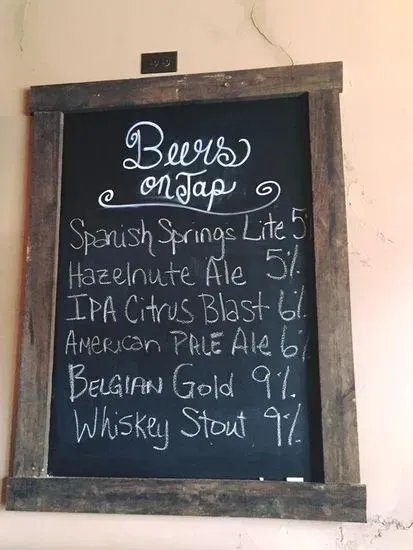 Beers
on Tap
Spanish Springs Lite 5
Hazelnute Ale 5%
IPA Citrus Blast 6%
American PALE Ale 6%
BELGIAN Gold 9%
Whiskey Stout 9%